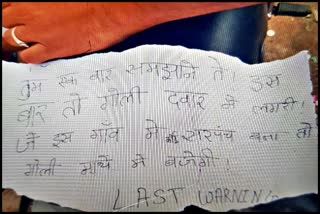 तुम एक बार समझाने ते। इस
बार तो गोली दवार मे लगरी।
जे इस गाँव मे सरपंच बना तो
गोली माथे मे बजेगी।
LAST WARNING